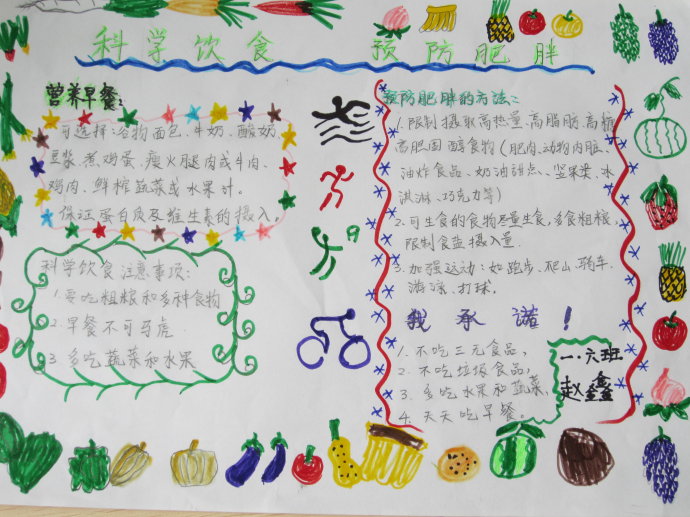 科学饮食 预防肥胖
营养早餐:
可选择:谷物面包、牛奶、酸奶
豆浆、煮鸡蛋、瘦火腿肉或牛肉、
鸡肉、鲜榨蔬菜或水果汁。
保证蛋白质及维生素的摄入。
科学饮食注意事项:
1.要吃粗粮和多种食物
2.早餐不可马虎
3.多吃蔬菜和水果
预防肥胖的方法:
1.限制摄取高热量、高脂肪、高糖
高胆固醇食物(肥肉、动物内脏、
油炸食品、奶油甜点、坚果类、冰
淇淋、巧克力等)
2.可生食的食物尽量生食,多食粗粮,
限制食盐摄入量.
3.加强运动:如跑步、爬山、骑车、
游泳、打球。
我承诺!
1.不吃三无食品,
2.不吃垃圾食品,
3.多吃水果和蔬菜,
4.天天吃早餐。
一·六班
赵鑫